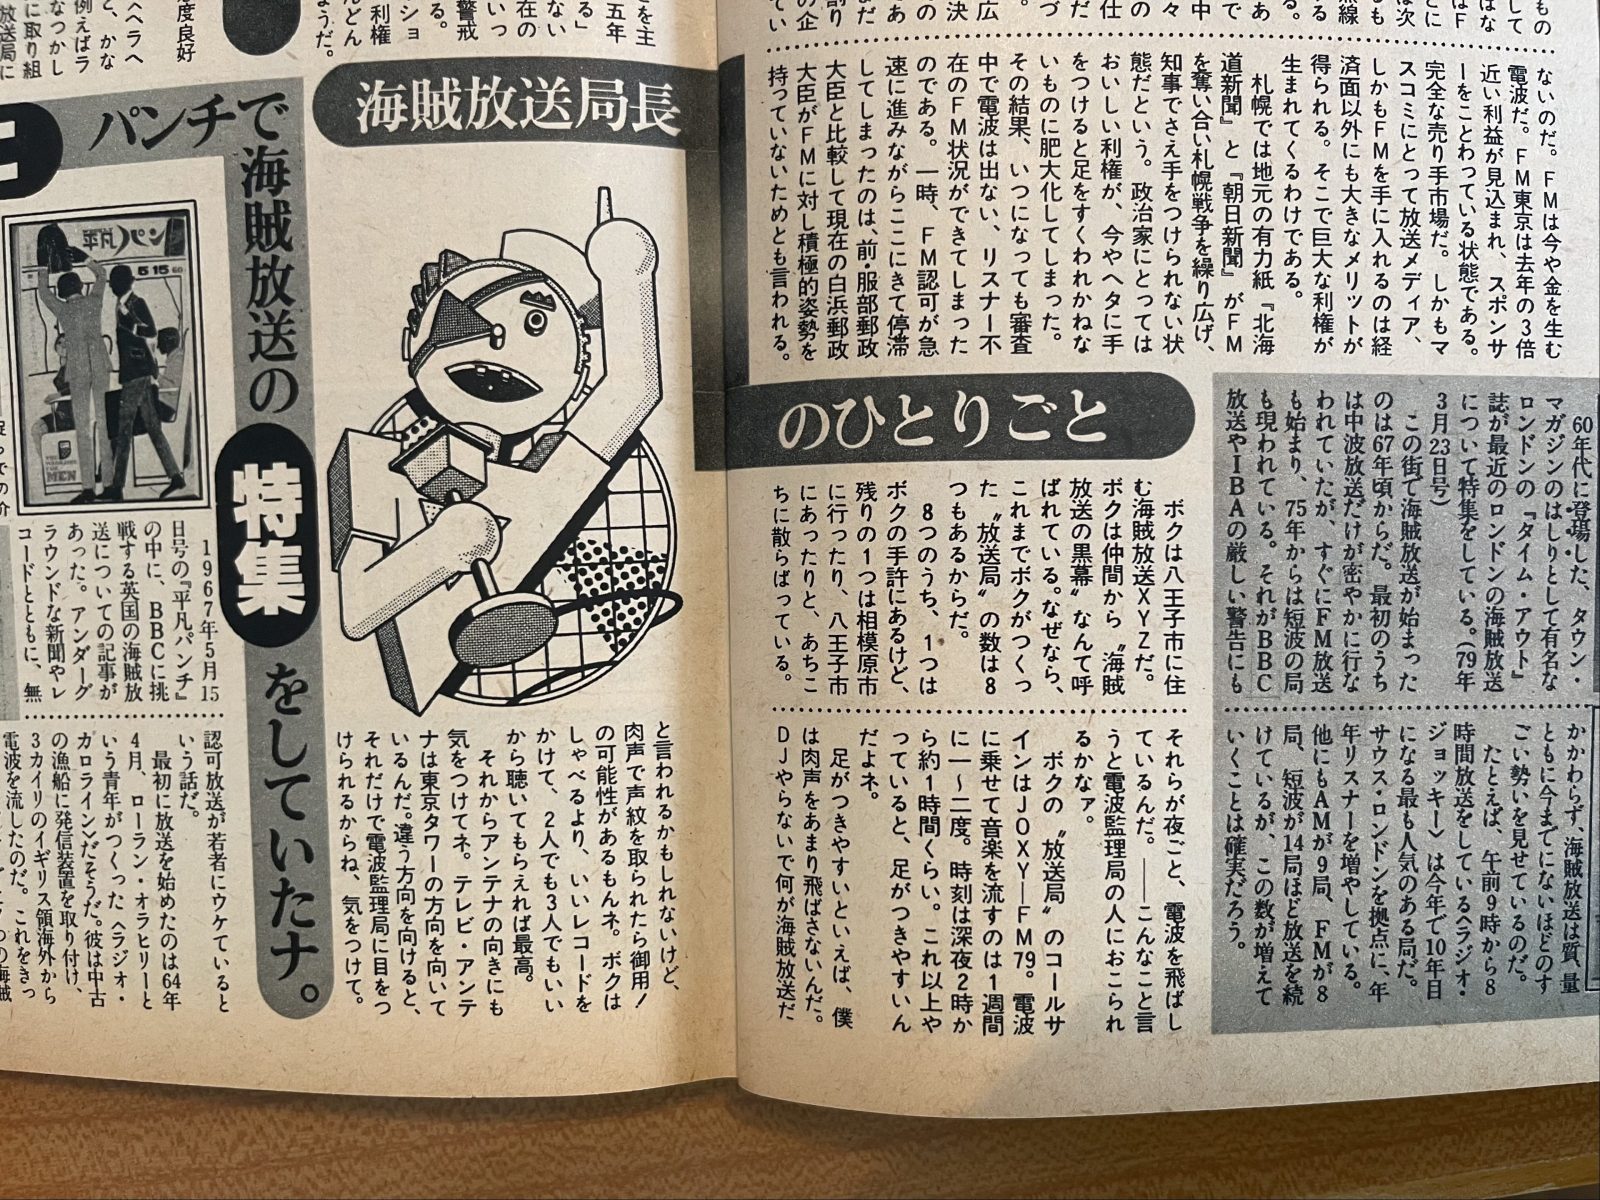 ないのだ。FMは今や金を生む
電波だ。FM東京は去年の3倍
近い利益が見込まれ、スポンサ
ーをことわっている状態である。
完全な売り手市場だ。しかもマ
スコミにとって放送メディア、
しかもFMを手に入れるのは経
済面以外にも大きなメリットが
得られる。そこで巨大な利権が
生まれてくるわけである。
札幌では地元の有力紙『北海
道新聞』と『朝日新聞』がFM
を奪い合い札幌戦争を繰り広げ、
知事でさえ手をつけられない状
態だという。政治家にとっては
おいしい利権が、今やヘタに手
をつけると足をすくわれかねな
いものに肥大化してしまった。
その結果、いつになっても審査
中で電波は出ない、リスナー不
在のFM状況ができてしまった
のである。一時、FM認可が急
速に進みながらここにきて停滞
してしまったのは、前・服部郵政
大臣と比較して現在の白浜郵政
大臣がFMに対し積極的姿勢を
持っていないためとも言われる。
60年代に登場した、タウン・
マガジンのはしりとして有名な
ロンドンの『タイム・アウト』
誌が最近のロンドンの海賊放送
について特集をしている。(79年
3月23日号)
この街で海賊放送が始まった
のは67年頃からだ。最初のうち
は中波放送だけが密やかに行な
われていたが、すぐにFM放送
も始まり、75年からは短波の局
も現われている。それがBBC
放送やIBAの厳しい警告にも
かかわらず、海賊放送は質、量
ともに今までにないほどのす
ごい勢いを見せているのだ。
たとえば、午前9時から8
時間放送をしている〈ラジオ・
ジョッキー〉は今年で10年目
になる最も人気のある局だ。
サウス・ロンドンを拠点に、年
年リスナーを増やしている。
他にもAMが9局、FMが8
局、短波が14局ほど放送を続
けているが、この数が増えて
いくことは確実だろう。
海賊放送局長
のひとりごと
ボクは八王子市に住
む海賊放送XYZだ。
ボクは仲間から〝海賊
放送の黒幕〟なんて呼
ばれている。なぜなら、
これまでボクがつくっ
た〝放送局〟の数は8
つもあるからだ。
8つのうち、1つは
ボクの手許にあるけど、
残りの1つは相模原市
に行ったり、八王子市
にあったりと、あちこ
ちに散らばっている。
それらが夜ごと、電波を飛ばし
ているんだ。──こんなこと言
うと電波監理局の人におこられ
るかなァ。
ボクの〝放送局〟のコールサ
インはJOXY─FM79。電波
に乗せて音楽を流すのは1週間
に一〜二度。時刻は深夜2時か
ら約1時間くらい。これ以上や
っていると、足がつきやすいん
だよネ。
足がつきやすいといえば、僕
は肉声をあまり飛ばさないんだ。
DJやらないで何が海賊放送だ
と言われるかもしれないけど、
肉声で声紋を取られたら御用！
の可能性があるもんネ。ボクは
しゃべるより、いいレコードを
かけて、2人でも3人でもいい
から聴いてもらえれば最高。
それからアンテナの向きにも
気をつけてネ。テレビ・アンテ
ナは東京タワーの方向を向いて
いるんだ。違う方向を向けると、
それだけで電波監理局に目をつ
けられるからね、気をつけて。
パンチで海賊放送の特集をしていたナ。
平凡パンチ
5 15
MEN
1967年5月15
日号の『平凡パンチ』
の中に、BBCに挑
戦する英国の海賊放
送についての記事が
あった。アンダーグ
ラウンドな新聞やレ
コードとともに、無
認可放送が若者にウケていると
いう話だ。
最初に放送を始めたのは64年
4月、ローラン・オラヒリーと
いう青年がつくった〈ラジオ・
カロライン〉だそうだ。彼は中古
の漁船に発信装置を取り付け、
3カイリのイギリス領海外から
電波を流したのだ。これをきっ